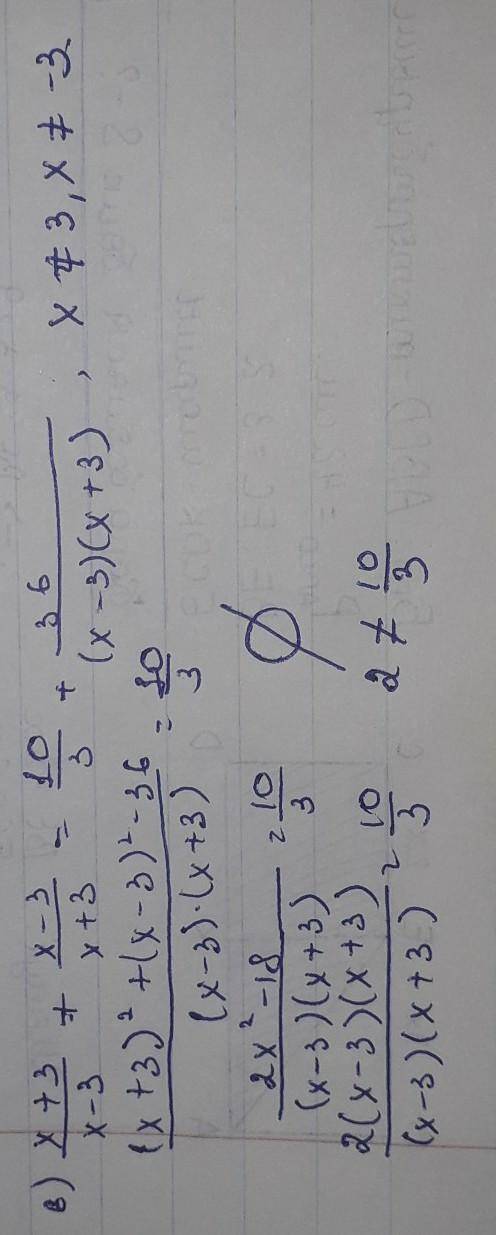 в) \frac{x+3}{x-3} + \frac{x-3}{x+3} = \frac{10}{3} + \frac{36}{(x-3)(x+3)}, x ≠ 3, x ≠ -3
\frac{(x+3)^2+(x-3)^2-36}{(x-3)·(x+3)} = \frac{10}{3}
\frac{2x^2-18}{(x-3)(x+3)} = \frac{10}{3} ∅
\frac{2(x-3)(x+3)}{(x-3)(x+3)} = \frac{10}{3} 2 ≠ \frac{10}{3}